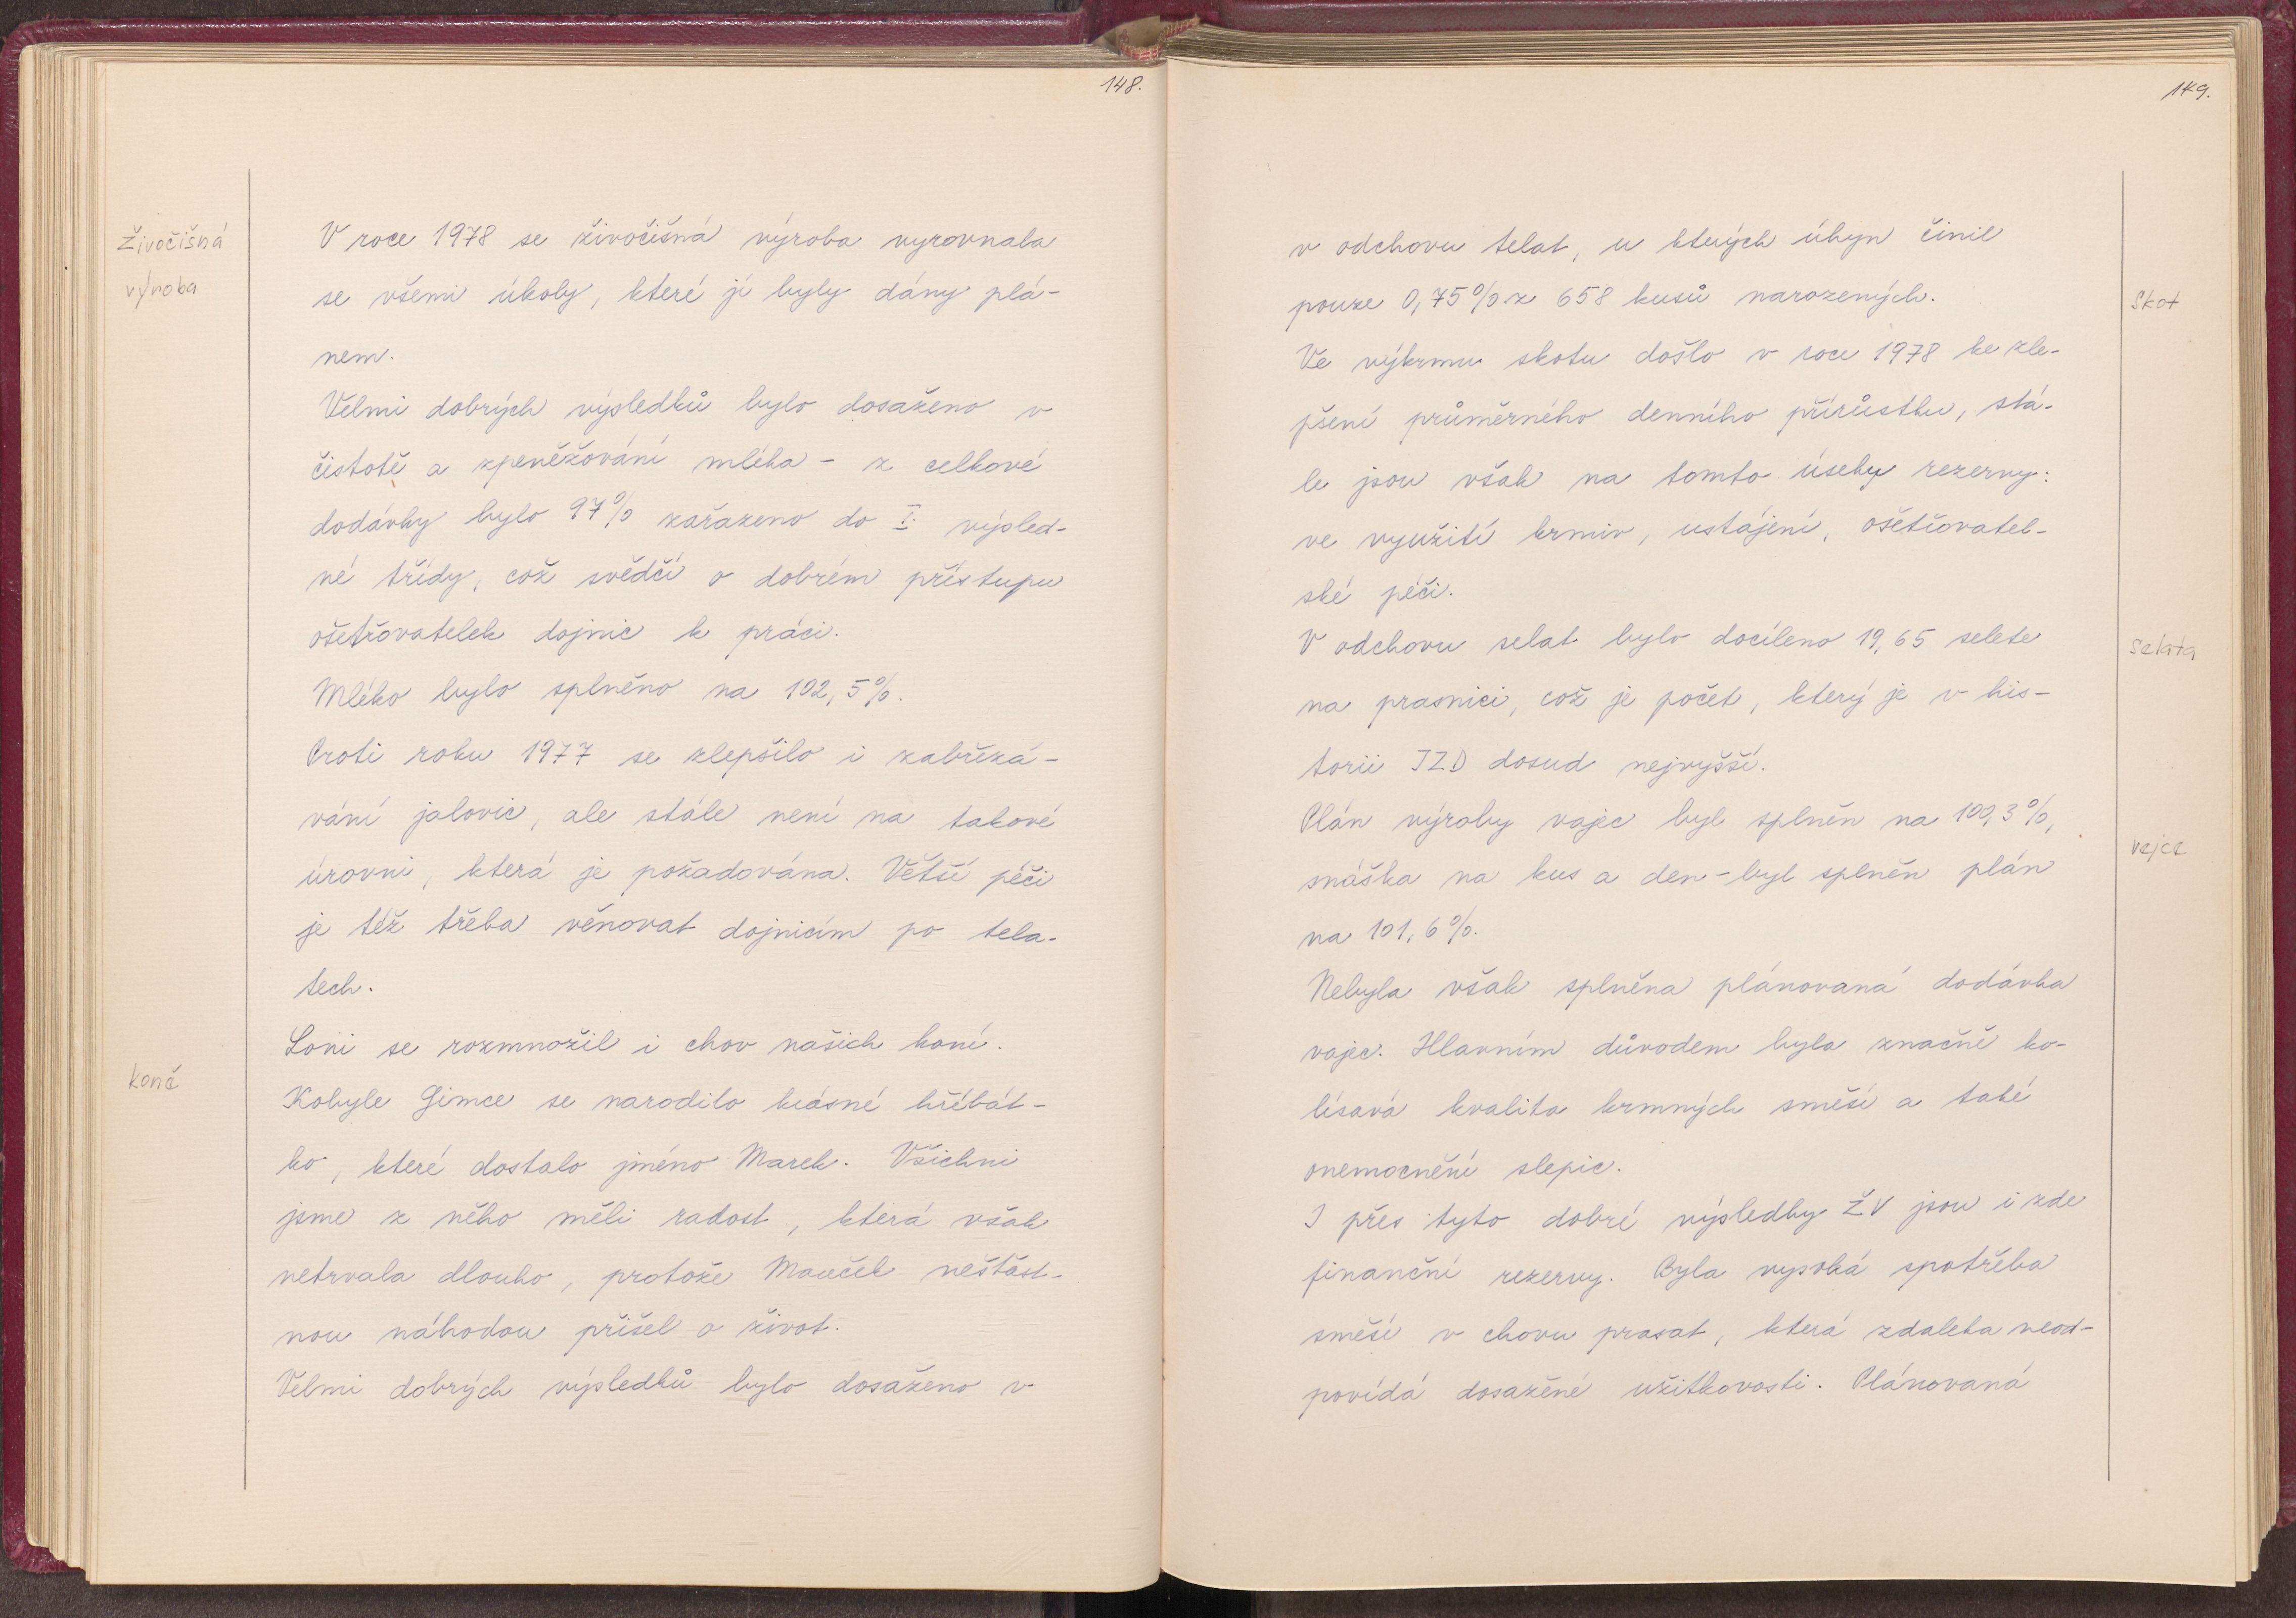 148.
Živočišná
výroba
V roce 1978 se živočišná výroba vyrovnala
se všemi úkoly, které jí byly dány plá-
nem.
Velmi dobrých výsledků bylo dosaženo v
čistotě a zpeněžování mléka - z celkové
dodávky bylo 97% zařazeno do I. výsled-
né třídy, což svědčí o dobrém přístupu
ošetřovatelek dojnic k práci.
Mléko bylo splněno na 102,5%.
Proti roku 1977 se zlepšilo i zabřezá-
vání jalovic, ale stále není na takové
úrovni, která je požadována. Větší péči
je též třeba věnovat dojnicím po tela-
tech.
koně
Loni se rozmnožil i chov našich koní.
Kobyle Gimce se narodilo krásné hříbát-
ko, které dostalo jméno Marek. Všichni
jsme z něho měli radost, která však
netrvala dlouho, protože Mareček nešťast-
nou náhodou přišel o život.
Velmi dobrých výsledků bylo dosaženo v
149.
v odchovu telat, u kterých úhyn činil
pouze 0,75% z 658 kusů narozených.
Skot
Ve výkrmu skotu došlo v roce 1978 ke zle-
pšení průměrného denního přírůstku, stá-
le jsou však na tomto úseky rezervy:
ve využití krmiv, ustájení, ošetřovatel-
ské péči.
Selata
V odchovu selat bylo docíleno 19,65 selete
na prasnici, což je počet, který je v his-
torii JZD dosud nejvyšší.
vejce
Plán výroby vajec byl splněn na 100,3%,
snáška na kus a den - byl splněn plán
na 101,6%.
Nebyla však splněna plánovaná dodávka
vajec. Hlavním důvodem byla značně ko-
lísavá kvalita krmných směsí a také
onemocnění slepic.
I přes tyto dobré výsledky ŽV jsou i zde
finanční rezervy. Byla vysoká spotřeba
směsí v chovu prasat, která zdaleka neod-
povídá dosažené užitkovosti. Plánovaná